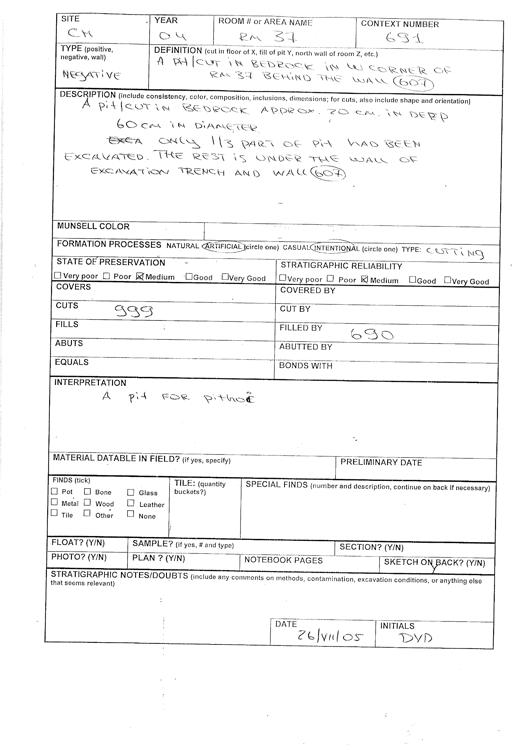 SITE YEAR ROOM # or AREA NAME CONTEXT NUMBER
CH 04 RM 37 691
TYPE (positive, negative, wall) DEFINITION (cut in floor of X, fill of pit Y, north wall of room Z, etc.)
NEGATIVE A PIT/CUT IN BEDROCK IN W CORNER OF
RM 37 BEHIND THE WALL (607)
DESCRIPTION (include consistency, color, composition, inclusions, dimensions; for cuts, also include shape and orientation)
A PIT/CUT IN BEDROCK APPROX. 20 CM. IN DEEP
60 CM IN DIAMETER
EXCA ONLY 1/3 PART OF PIT HAD BEEN
EXCAVATED. THE REST IS UNDER THE WALL OF
EXCAVATION TRENCH AND WALL (607)
MUNSELL COLOR
FORMATION PROCESSES NATURAL ARTIFICIAL (circle one) CASUAL INTENTIONAL (circle one) TYPE: CUTTING
STATE OF PRESERVATION STRATIGRAPHIC RELIABILITY
☐ Very poor ☐ Poor ☒ Medium ☐ Good ☐ Very Good ☐ Very poor ☐ Poor ☒ Medium ☐ Good ☐ Very Good
COVERS COVERED BY
CUTS 999 CUT BY
FILLS FILLED BY 690
ABUTS ABUTTED BY
EQUALS BONDS WITH
INTERPRETATION
A pit FOR pithoi
MATERIAL DATABLE IN FIELD? (if yes, specify) PRELIMINARY DATE
FINDS (tick) TILE: (quantity buckets?) SPECIAL FINDS (number and description, continue on back if necessary)
☐ Pot ☐ Bone ☐ Glass
☐ Metal ☐ Wood ☐ Leather
☐ Tile ☐ Other ☐ None
FLOAT? (Y/N) SAMPLE? (if yes, # and type) SECTION? (Y/N)
PHOTO? (Y/N) PLAN ? (Y/N) NOTEBOOK PAGES SKETCH ON BACK? (Y/N)
STRATIGRAPHIC NOTES/DOUBTS (include any comments on methods, contamination, excavation conditions, or anything else
that seems relevant)
DATE INITIALS
26/VII/05 DVD